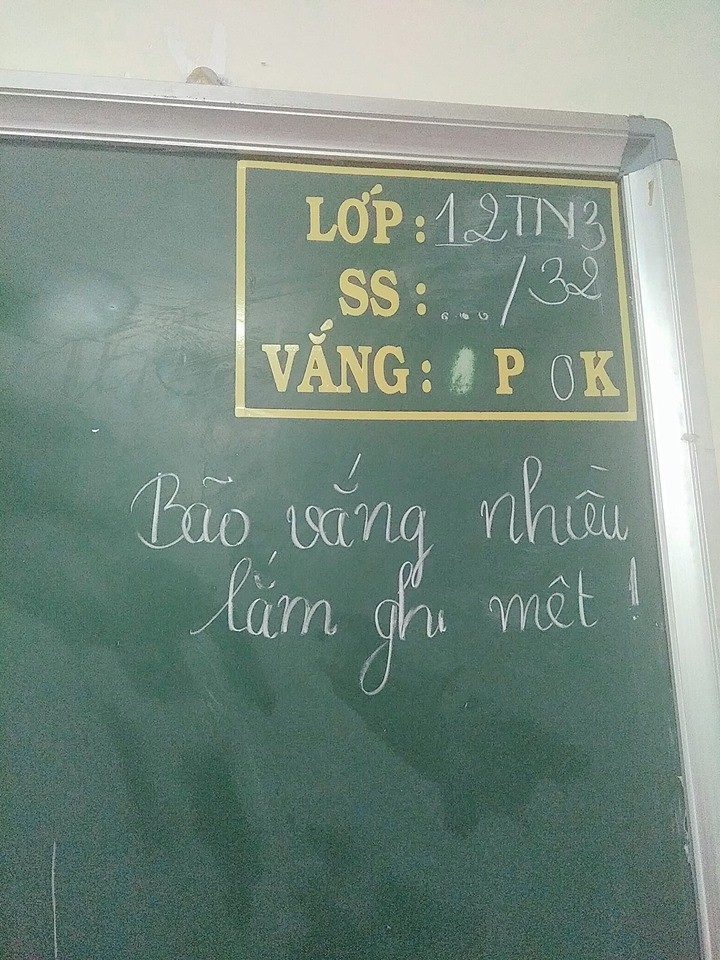 LỚP: 12TN3
SS: .../32
VẮNG: P 0 K
Bão vắng nhiều
lắm ghi mêt!